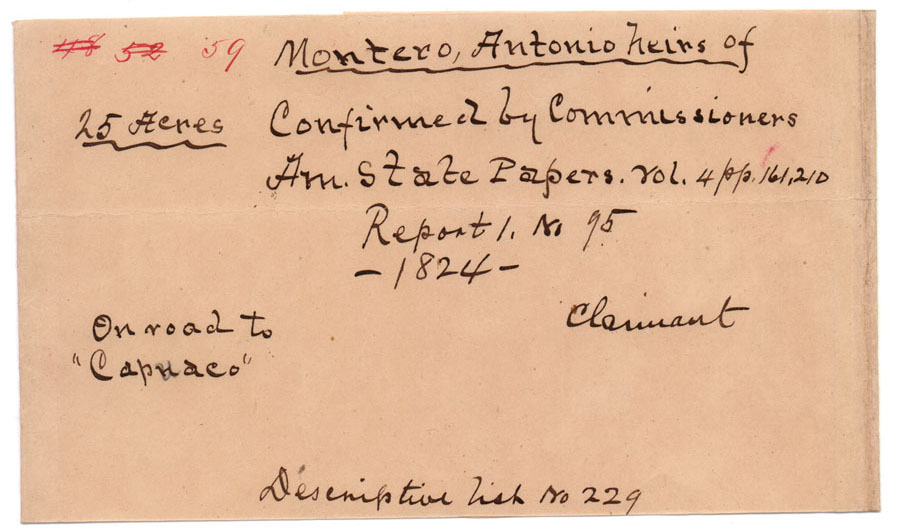 48 52 59 Montero, Antonio heirs of
25 Acres Confirmed by Commissioners
Am. State Papers. Vol. 4 pp. 161, 210
Report 1. No 95
- 1824 -
On road to Claimant
"Capuaco"
Descriptive list No 229